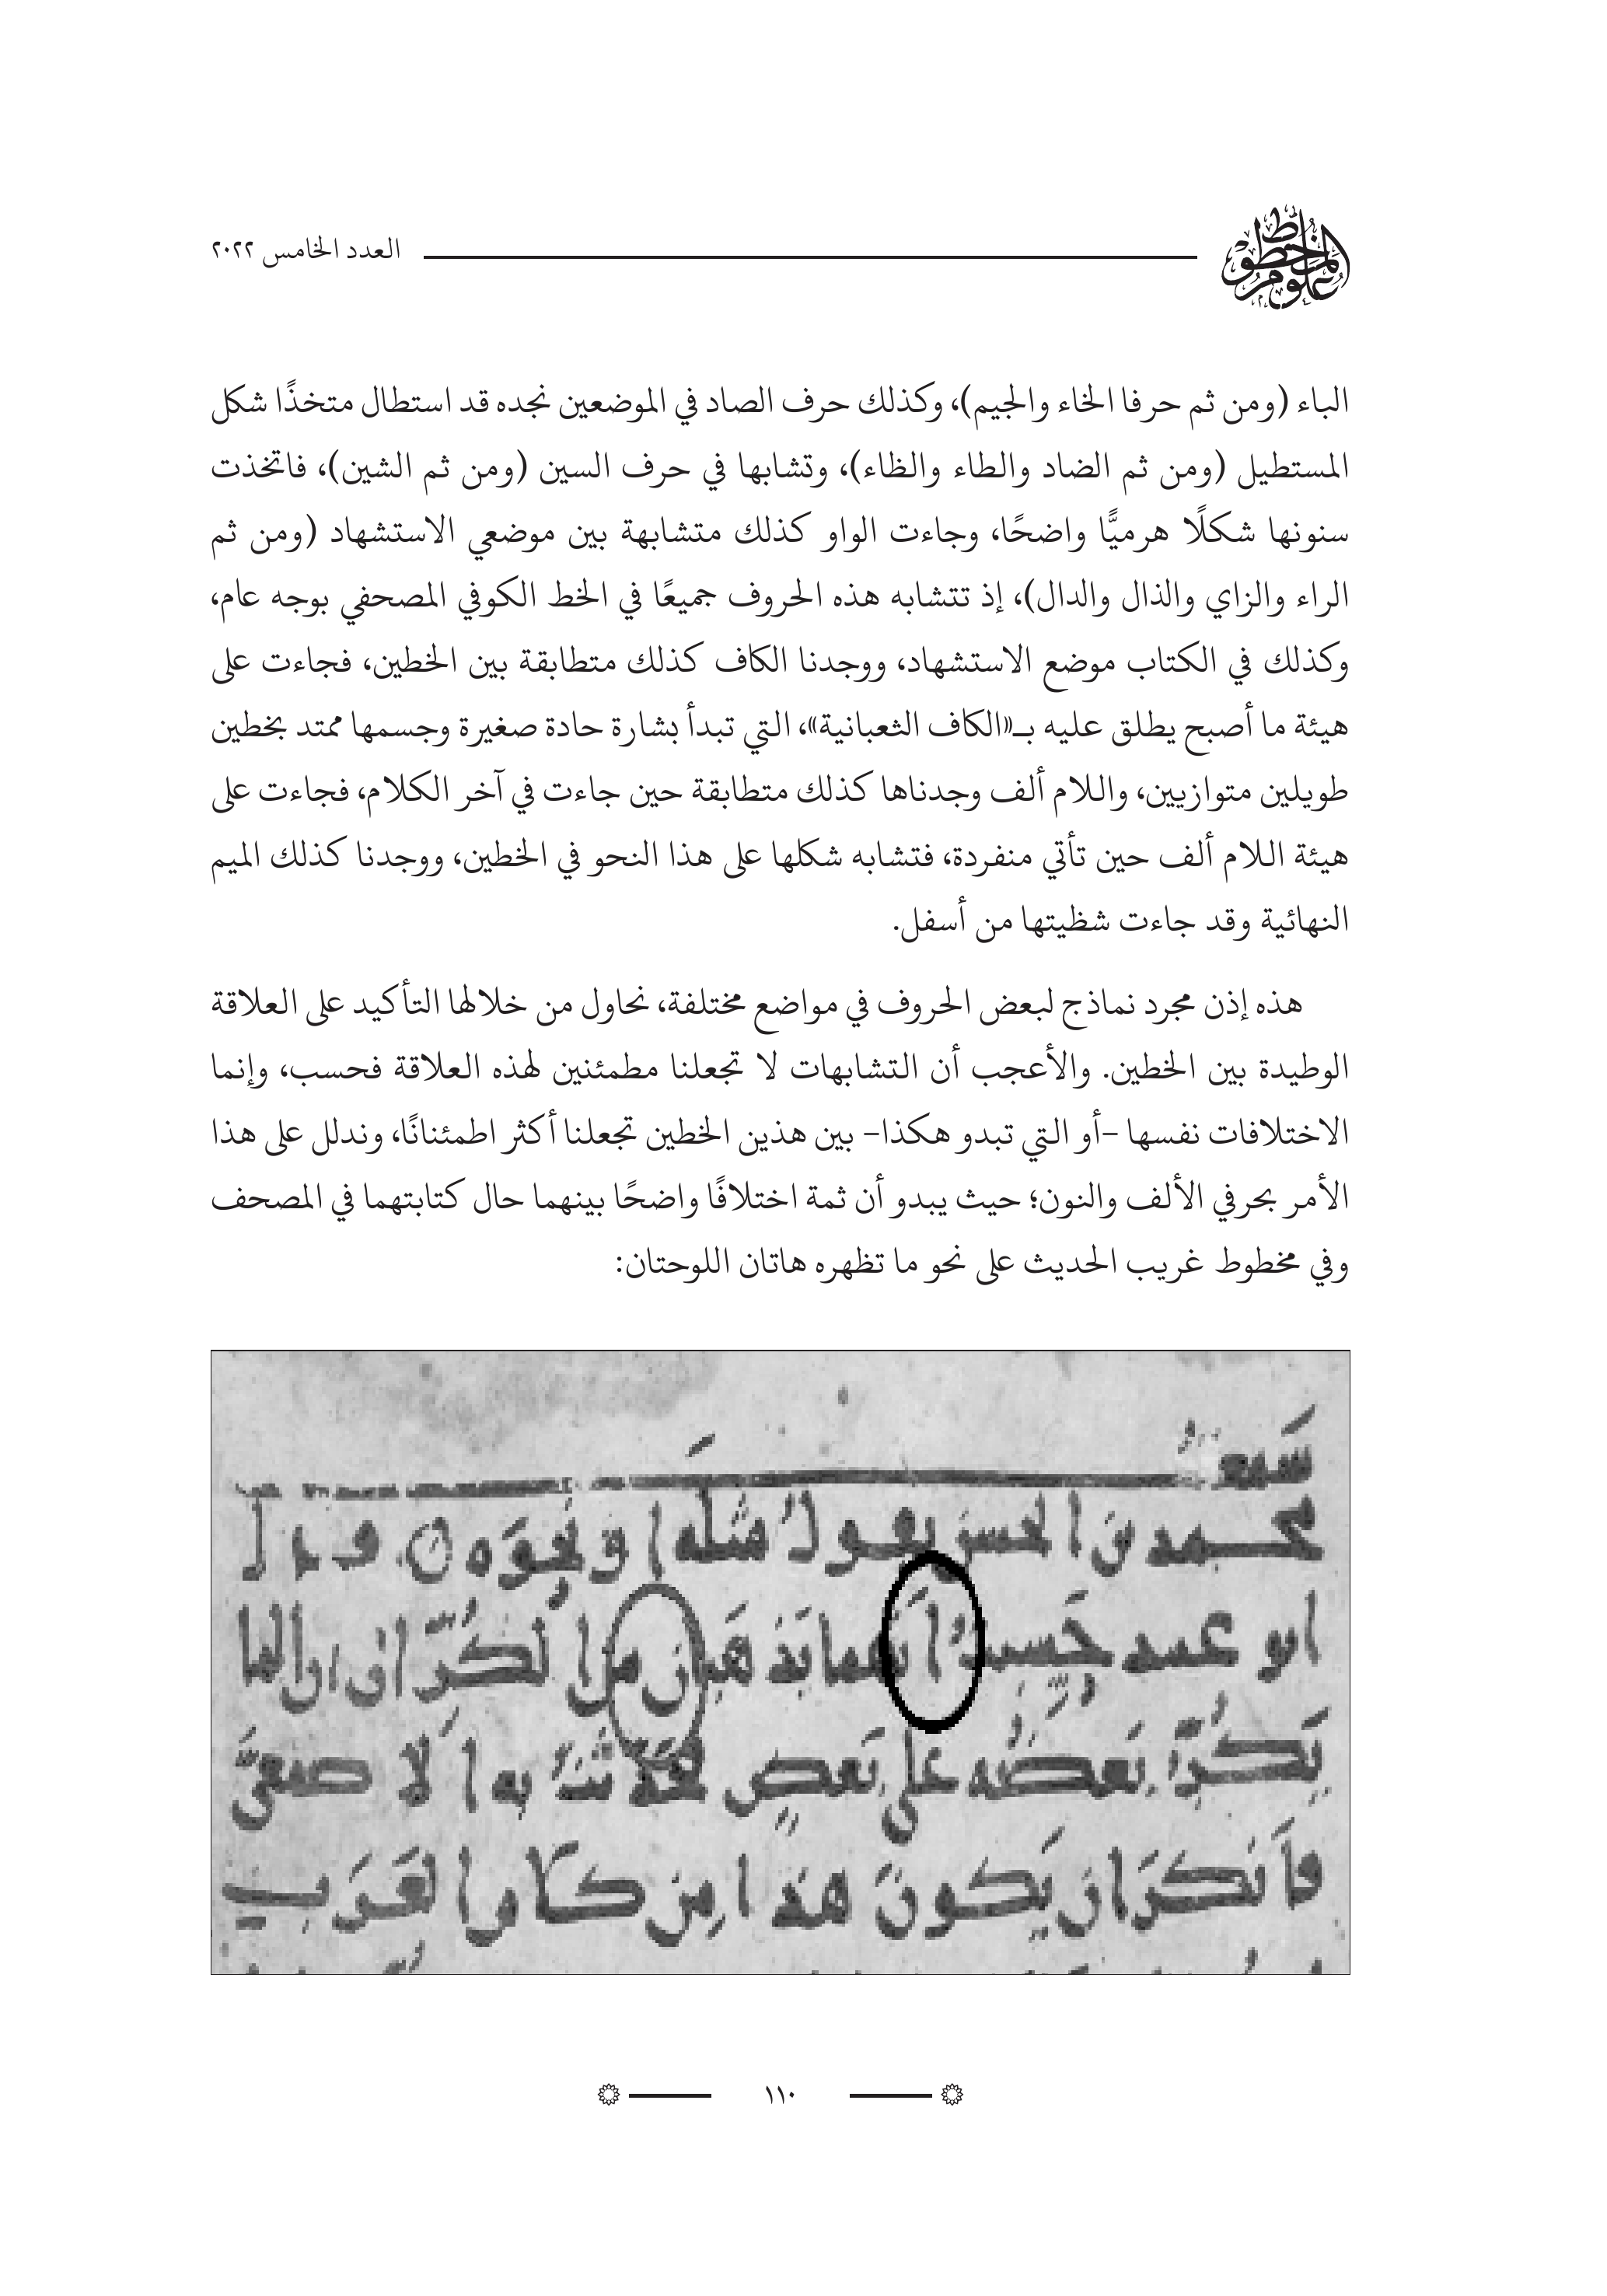 علوم المخطوط
العدد الخامس ٢٠٢٢
الباء (ومن ثم حرفا الخاء والجيم)، وكذلك حرف الصاد في الموضعين نجده قد استطال متخذًا شكل
المستطيل (ومن ثم الضاد والطاء والظاء)، وتشابها في حرف السين (ومن ثم الشين)، فاتخذت
سنونها شكلًا هرميًّا واضحًا، وجاءت الواو كذلك متشابهة بين موضعي الاستشهاد (ومن ثم
الراء والزاي والذال والدال)، إذ تتشابه هذه الحروف جميعًا في الخط الكوفي المصحفي بوجه عام،
وكذلك في الكتاب موضع الاستشهاد، ووجدنا الكاف كذلك متطابقة بين الخطين، فجاءت على
هيئة ما أصبح يطلق عليه بـ«الكاف الثعبانية»، التي تبدأ بشارة حادة صغيرة وجسمها ممتد بخطين
طويلين متوازيين، واللام ألف وجدناها كذلك متطابقة حين جاءت في آخر الكلام، فجاءت على
هيئة اللام ألف حين تأتي منفردة، فتشابه شكلها على هذا النحو في الخطين، ووجدنا كذلك الميم
النهائية وقد جاءت شظيتها من أسفل.
هذه إذن مجرد نماذج لبعض الحروف في مواضع مختلفة، نحاول من خلالها التأكيد على العلاقة
الوطيدة بين الخطين. والأعجب أن التشابهات لا تجعلنا مطمئنين لهذه العلاقة فحسب، وإنما
الاختلافات نفسها -أو التي تبدو هكذا- بين هذين الخطين تجعلنا أكثر اطمئنانًا، وندلل على هذا
الأمر بحرفي الألف والنون؛ حيث يبدو أن ثمة اختلافًا واضحًا بينهما حال كتابتهما في المصحف
وفي مخطوط غريب الحديث على نحو ما تظهره هاتان اللوحتان:
محمد بن الحسن يقول مثله او نحوه قال
ابو عبيد
بعضه على بعض
يكون هذا من كلام العرب
١١٠